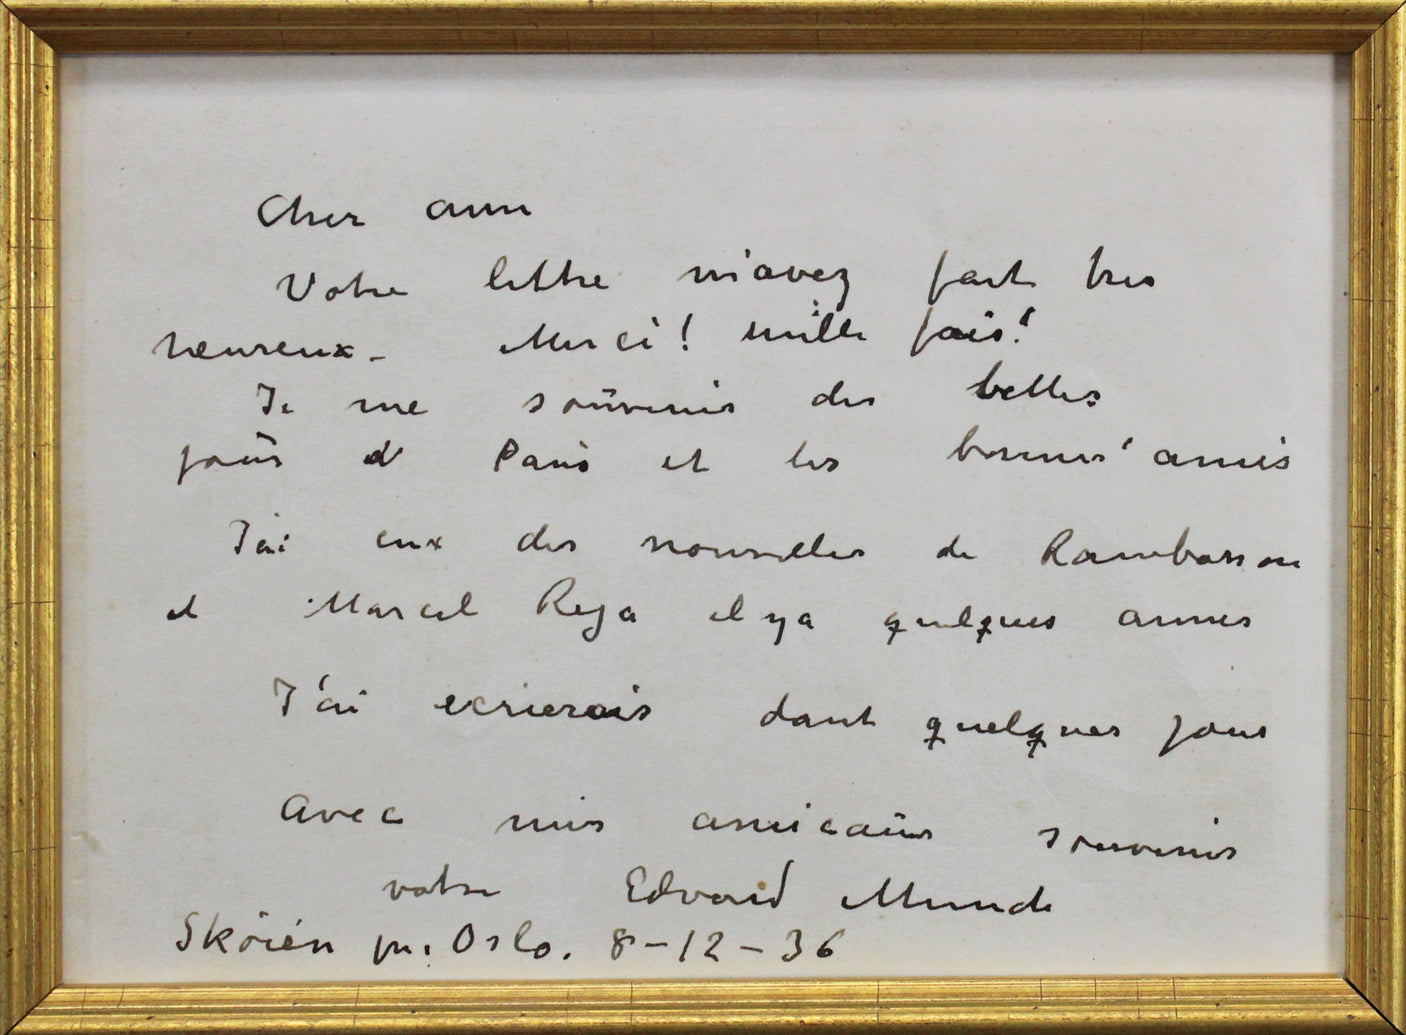 Cher ami
Votre lettre m'avez fait tres
heureux - Merci! mille fois!
Je me souvenir des belles
jours d Paris et les bonnes amis
J'ai eux des nouvelles de Rambosson
et Marcel Reja il ya quelques annes
J'ai ecrierais dant quelques jours
Avec mes amicaux souvenirs
votre Edvard Munch
Sköien pr. Oslo. 8-12-36